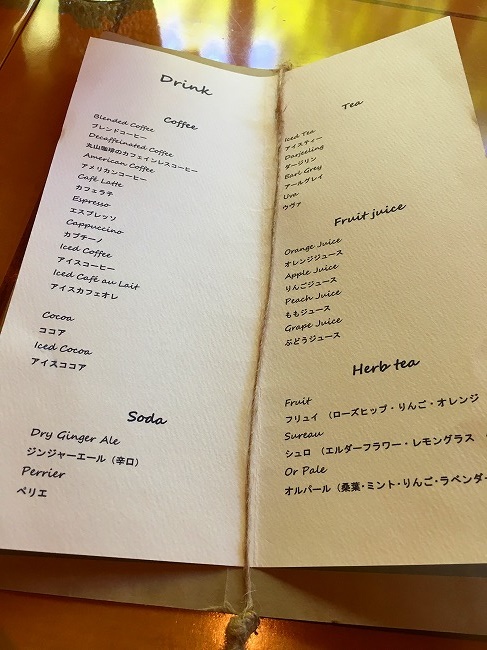 Drink
Coffee
Blended Coffee
ブレンドコーヒー
Decaffeinated Coffee
丸山珈琲のカフェインレスコーヒー
American Coffee
アメリカンコーヒー
Café Latte
カフェラテ
Espresso
エスプレッソ
Cappuccino
カプチーノ
Iced Coffee
アイスコーヒー
Iced Café au Lait
アイスカフェオレ
Cocoa
ココア
Iced Cocoa
アイスココア
Soda
Dry Ginger Ale
ジンジャーエール（辛口）
Perrier
ペリエ
Tea
Iced Tea
アイスティー
Darjeeling
ダージリン
Earl Grey
アールグレイ
Uva
ウヴァ
Fruit juice
Orange Juice
オレンジジュース
Apple Juice
りんごジュース
Peach Juice
ももジュース
Grape Juice
ぶどうジュース
Herb tea
Fruit
フリュイ （ローズヒップ・りんご・オレンジ
Sureau
シュロ （エルダーフラワー・レモングラス
Or Pale
オルパール（桑葉・ミント・りんご・ラベンダー